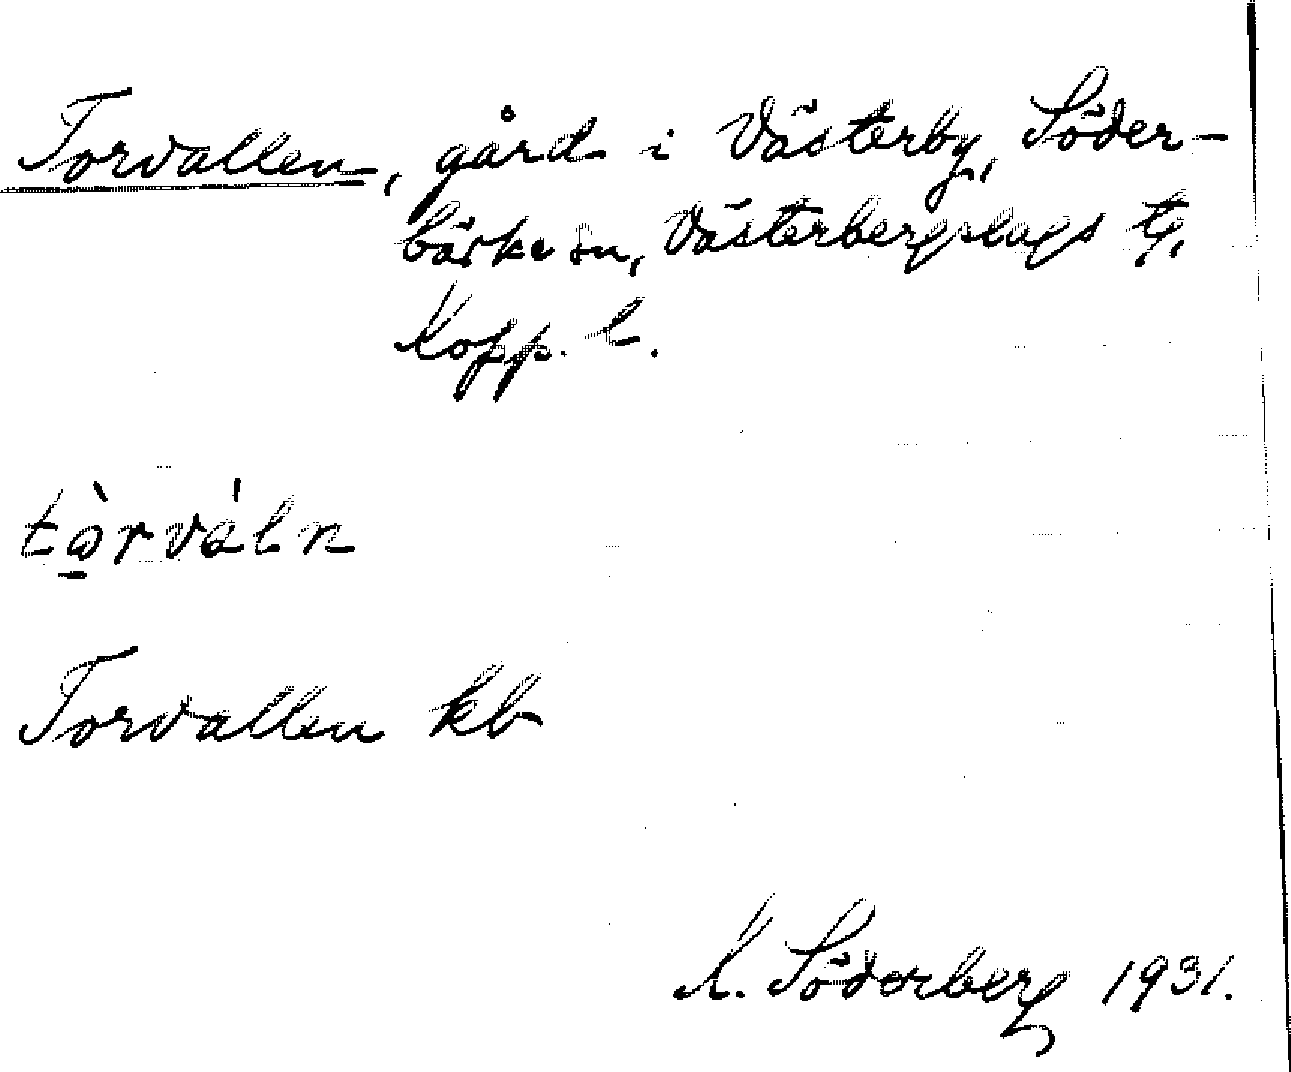 Torvallen, gård i Västerby, Söder-
bärke sn, Västerbergslags tg,
Kopp. l.
Torvallen kb
K. Söderberg 1931.